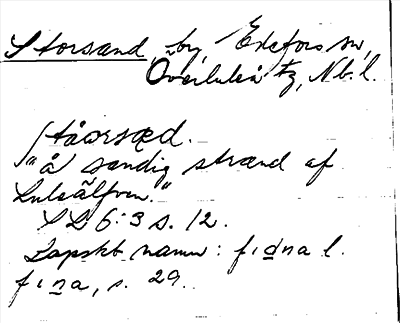 Storsand, by, Edefors sn,
Överluleå tg, Nb. l.
ståorsæd.
"å sandig strand af
Lule älfven."
SL 6:3 s. 12.
Lapskt namn: fidna l.
fina, s. 29.